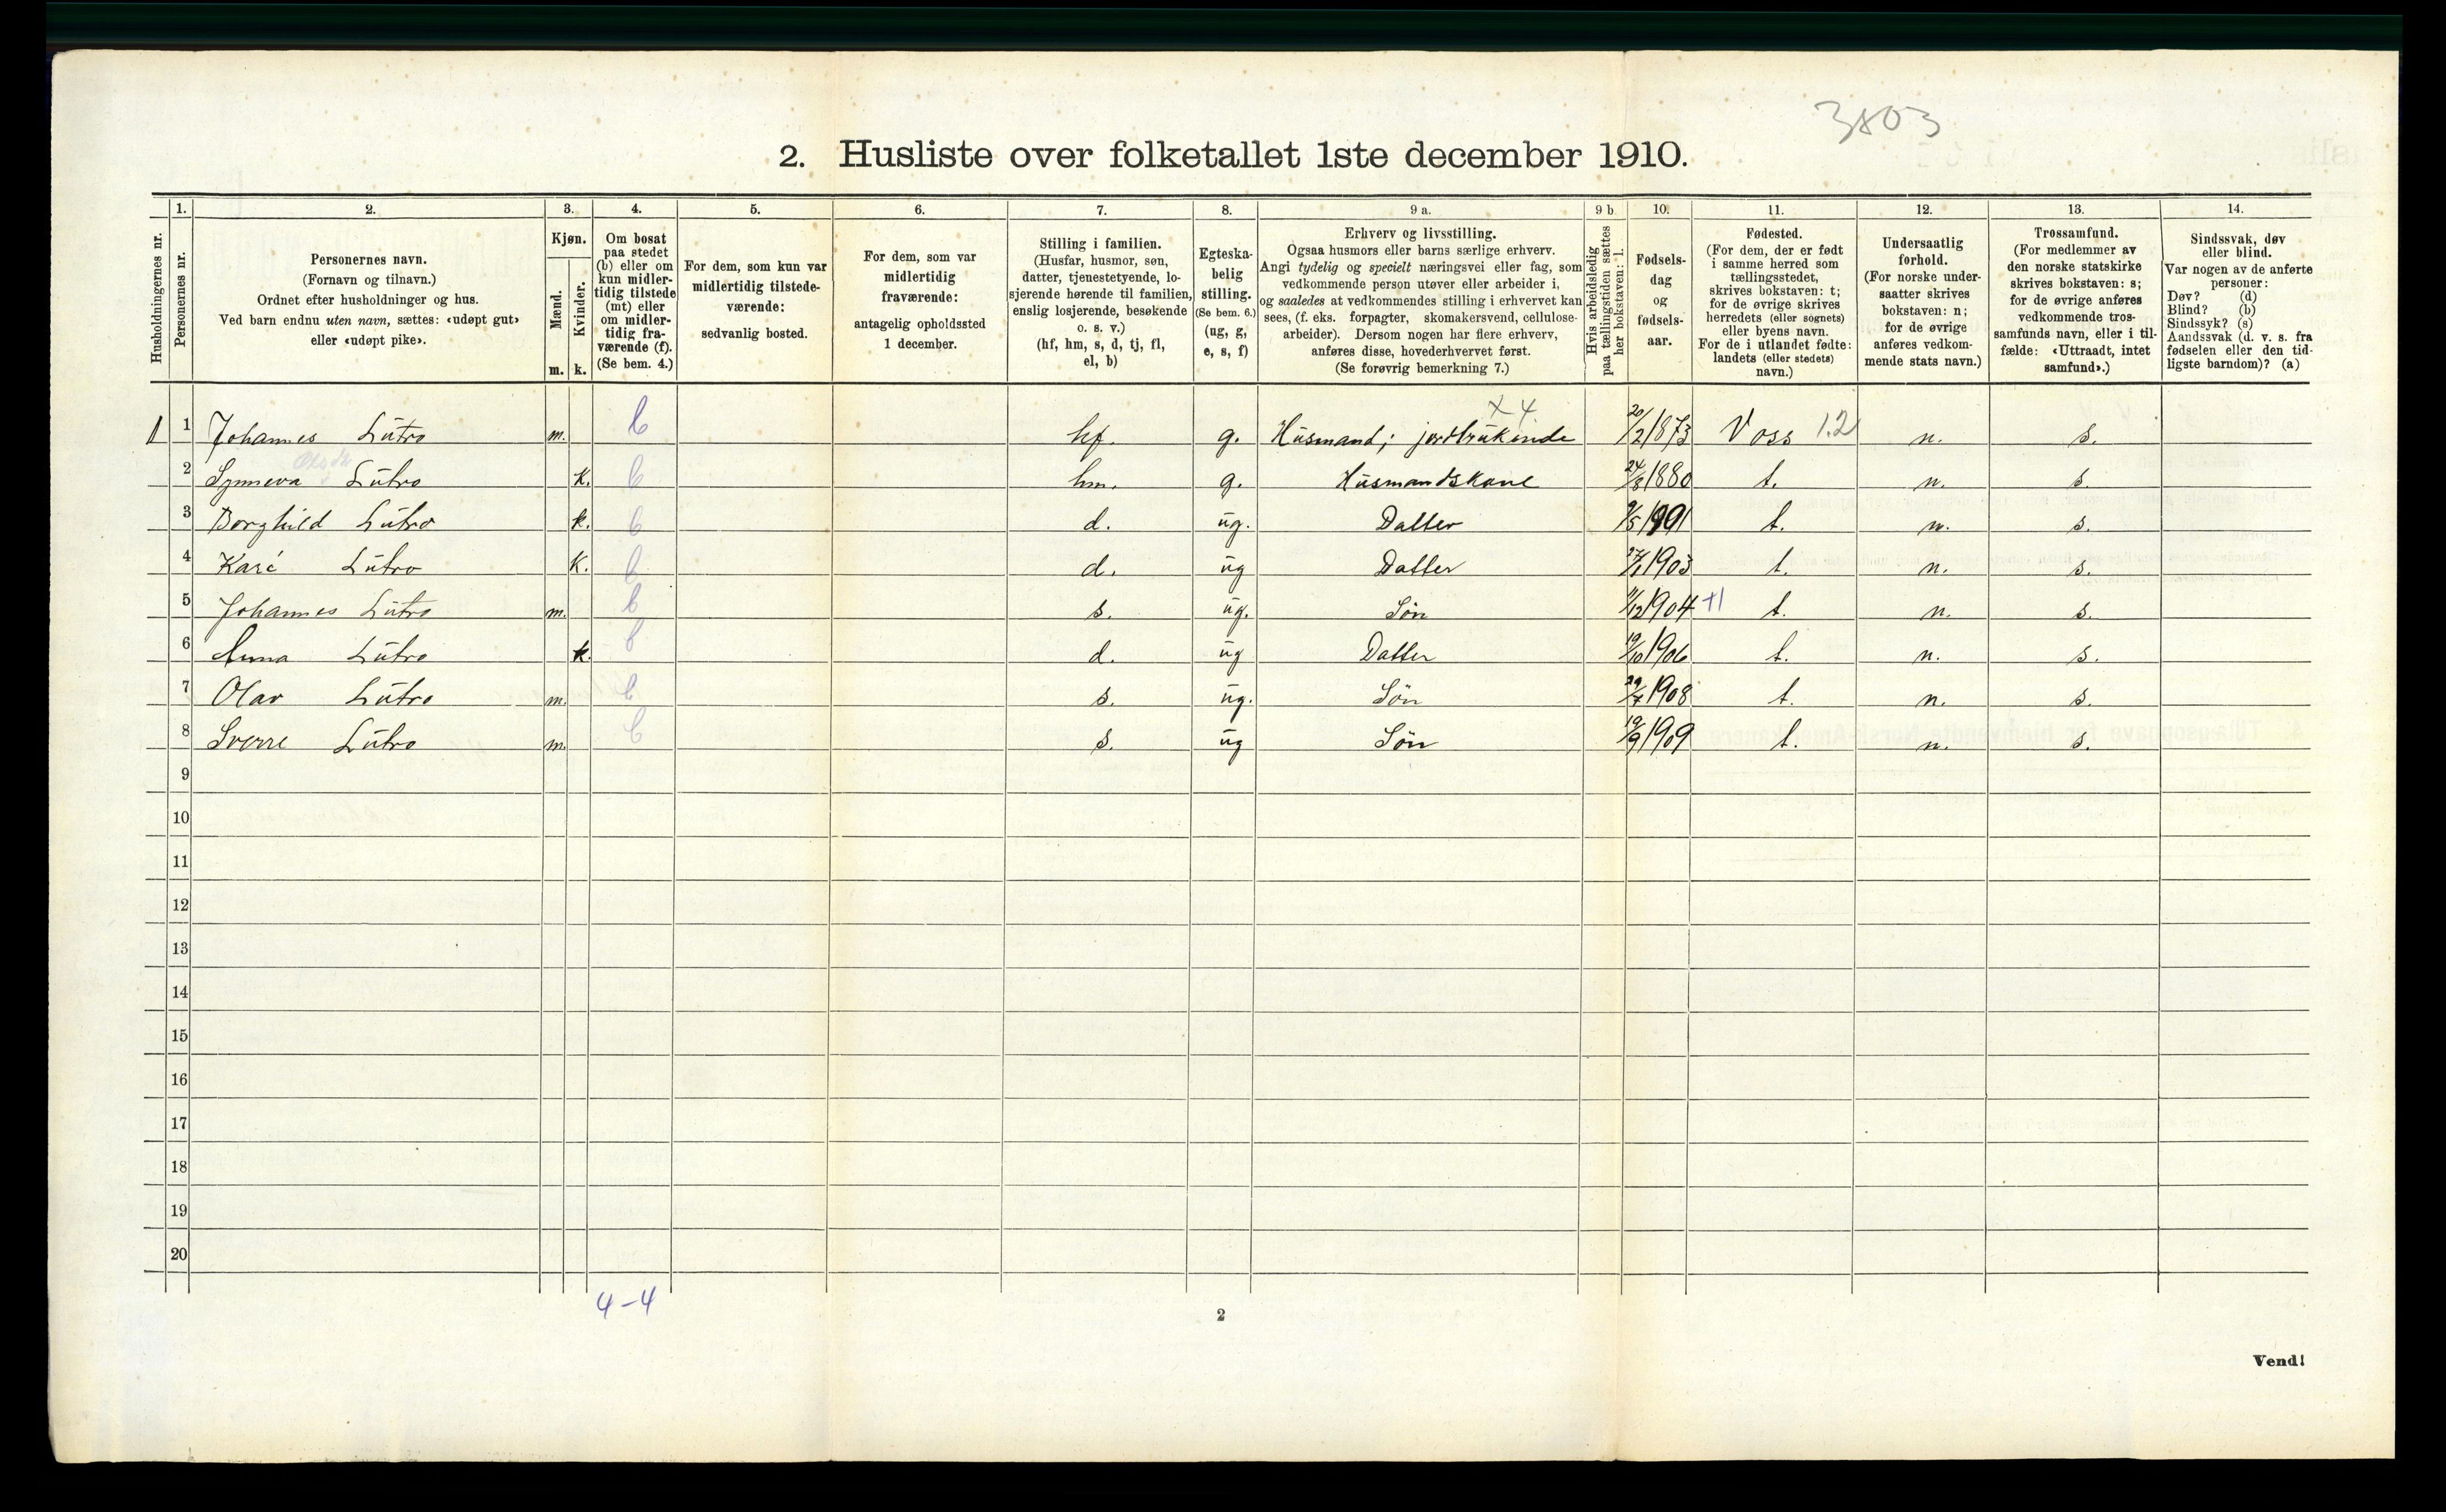 3803
2. Husliste over folketallet 1ste december 1910.
Husholdningernes nr.
1.
Personernes nr.
2.
Personernes navn.
(Fornavn og tilnavn.)
Ordnet efter husholdninger og hus.
Ved barn endnu uten navn, sættes: «udøpt gut»
eller «udøpt pike».
3.
Kjøn.
Mænd.
Kvinder.
m. k.
4.
Om bosat
paa stedet
(b) eller om
kun midler-
tidig tilstede
(mt) eller
om midler-
tidig fra-
værende (f).
(Se bem. 4.)
5.
For dem, som kun var
midlertidig tilstede-
værende:
sedvanlig bosted.
6.
For dem, som var
midlertidig
fraværende:
antagelig opholdssted
1 december.
7.
Stilling i familien.
(Husfar, husmor, søn,
datter, tjenestetyende, lo-
sjerende hørende til familien,
enslig losjerende, besøkende
o. s. v.)
(hf, hm, s, d, tj, fl,
el, b)
8.
Egteska-
belig
stilling.
(Se bem. 6.)
(ug, g,
e, s, f)
9 a.
Erhverv og livsstilling.
Ogsaa husmors eller barns særlige erhverv.
Angi tydelig og specielt næringsvei eller fag, som
vedkommende person utøver eller arbeider i,
og saaledes at vedkommendes stilling i erhvervet kan
sees, (f. eks. forpagter, skomakersvend, cellulose-
arbeider). Dersom nogen har flere erhverv,
anføres disse, hovederhvervet først.
(Se forøvrig bemerkning 7.)
9 b
Hvis arbeidsledig
paa tællingstiden sættes
her bokstaven: l.
10.
Fødsels-
dag
og
fødsels-
aar.
11.
Fødested.
(For dem, der er født
i samme herred som
tællingsstedet,
skrives bokstaven: t;
for de øvrige skrives
herredets (eller sognets)
eller byens navn.
For de i utlandet fødte:
landets (eller stedets)
navn.)
12.
Undersaatlig
forhold.
(For norske under-
saatter skrives
bokstaven: n;
for de øvrige
anføres vedkom-
mende stats navn.)
13.
Trossamfund.
(For medlemmer av
den norske statskirke
skrives bokstaven: s;
for de øvrige anføres
vedkommende tros-
samfunds navn, eller i til-
fælde: «Uttraadt, intet
samfund».)
14.
Sindssvak, døv
eller blind.
Var nogen av de anførte
personer:
Døv? (d)
Blind? (b)
Sindssyk? (s)
Aandssvak (d. v. s. fra
fødselen eller den tid-
ligste barndom)? (a)
x 4
1 1 Johannes Lutro m. b hf. g. Husmand; jordbrukende 20/2 1873 Voss 1.2 n. s.
2 Synneva Lutro k. b hm. g. Husmandskone 24/8 1880 t. n. s.
3 Borghild Lutro k. b d. ug. Datter t. n. s.
4 Kari Lutro k. b d. ug Datter 1903 t. n. s.
5 Johannes Lutro m. b s. ug. Søn 11/12 1904 t. n. s.
6 Anna Lutro k. b d. ug Datter 19/10 1906 t. n. s.
7 Olav Lutro m. b s. ug. Søn 1908 t. n. s.
8 Sverre Lutro m. b s. ug Søn 19/9 1909 t. n. s.
9
10
11
12
13
14
15
16
17
18
19
20
4-4
2
Vend!